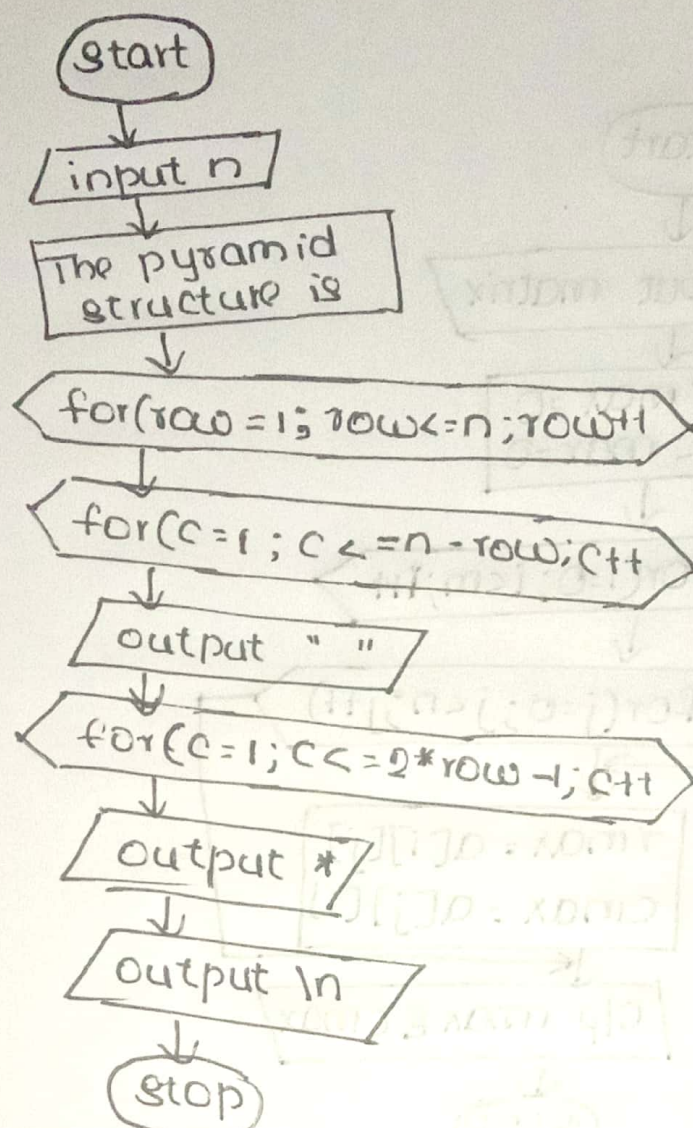 start
input n
The pyramid
structure is
for(row=1; row<=n; row++
for(c=1; c<=n-row; c++
output " "
for(c=1; c<=2*row-1; c++
output *
output \n
stop